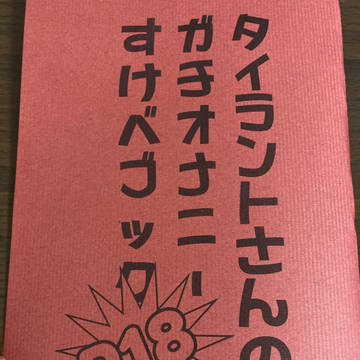 タイラントさんの
ガチオナニー
すけべブック
R18